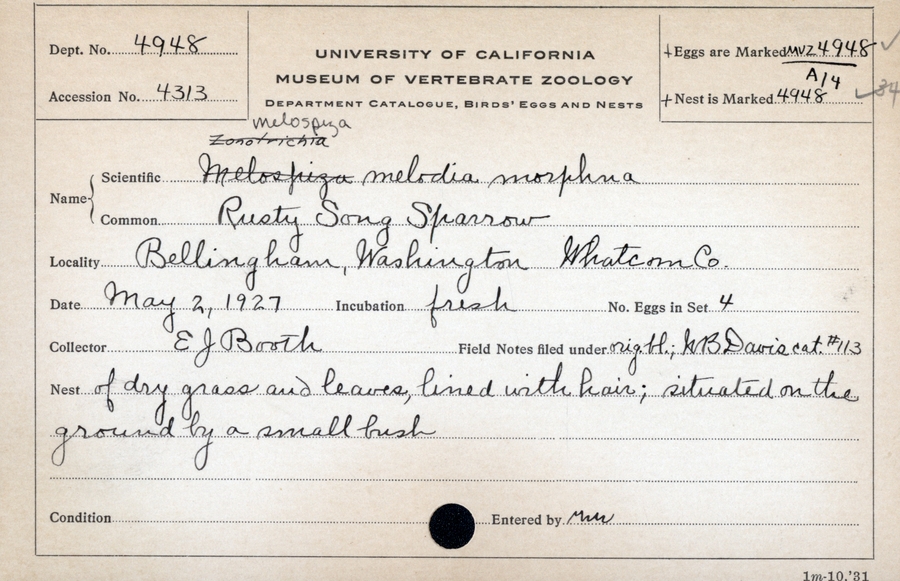 Dept. No. 4948
UNIVERSITY OF CALIFORNIA
MUSEUM OF VERTEBRATE ZOOLOGY
DEPARTMENT CATALOGUE, BIRDS' EGGS AND NESTS
Accession No. 4313
+Eggs are Marked MVZ 4948
A/4
+Nest is Marked 4948
melospiza
Zonotrichia
Name Scientific Melospiza melodia morphna
Common Rusty Song Sparrow
Locality Bellingham, Washington Whatcom Co.
Date May 2, 1927 Incubation fresh No. Eggs in Set 4
Collector E J Booth Field Notes filed under orig. bl.; WB Davis cat. #113
Nest of dry grass and leaves, lined with hair; situated on the
ground by a small bush
Condition Entered by
1m-10,'31